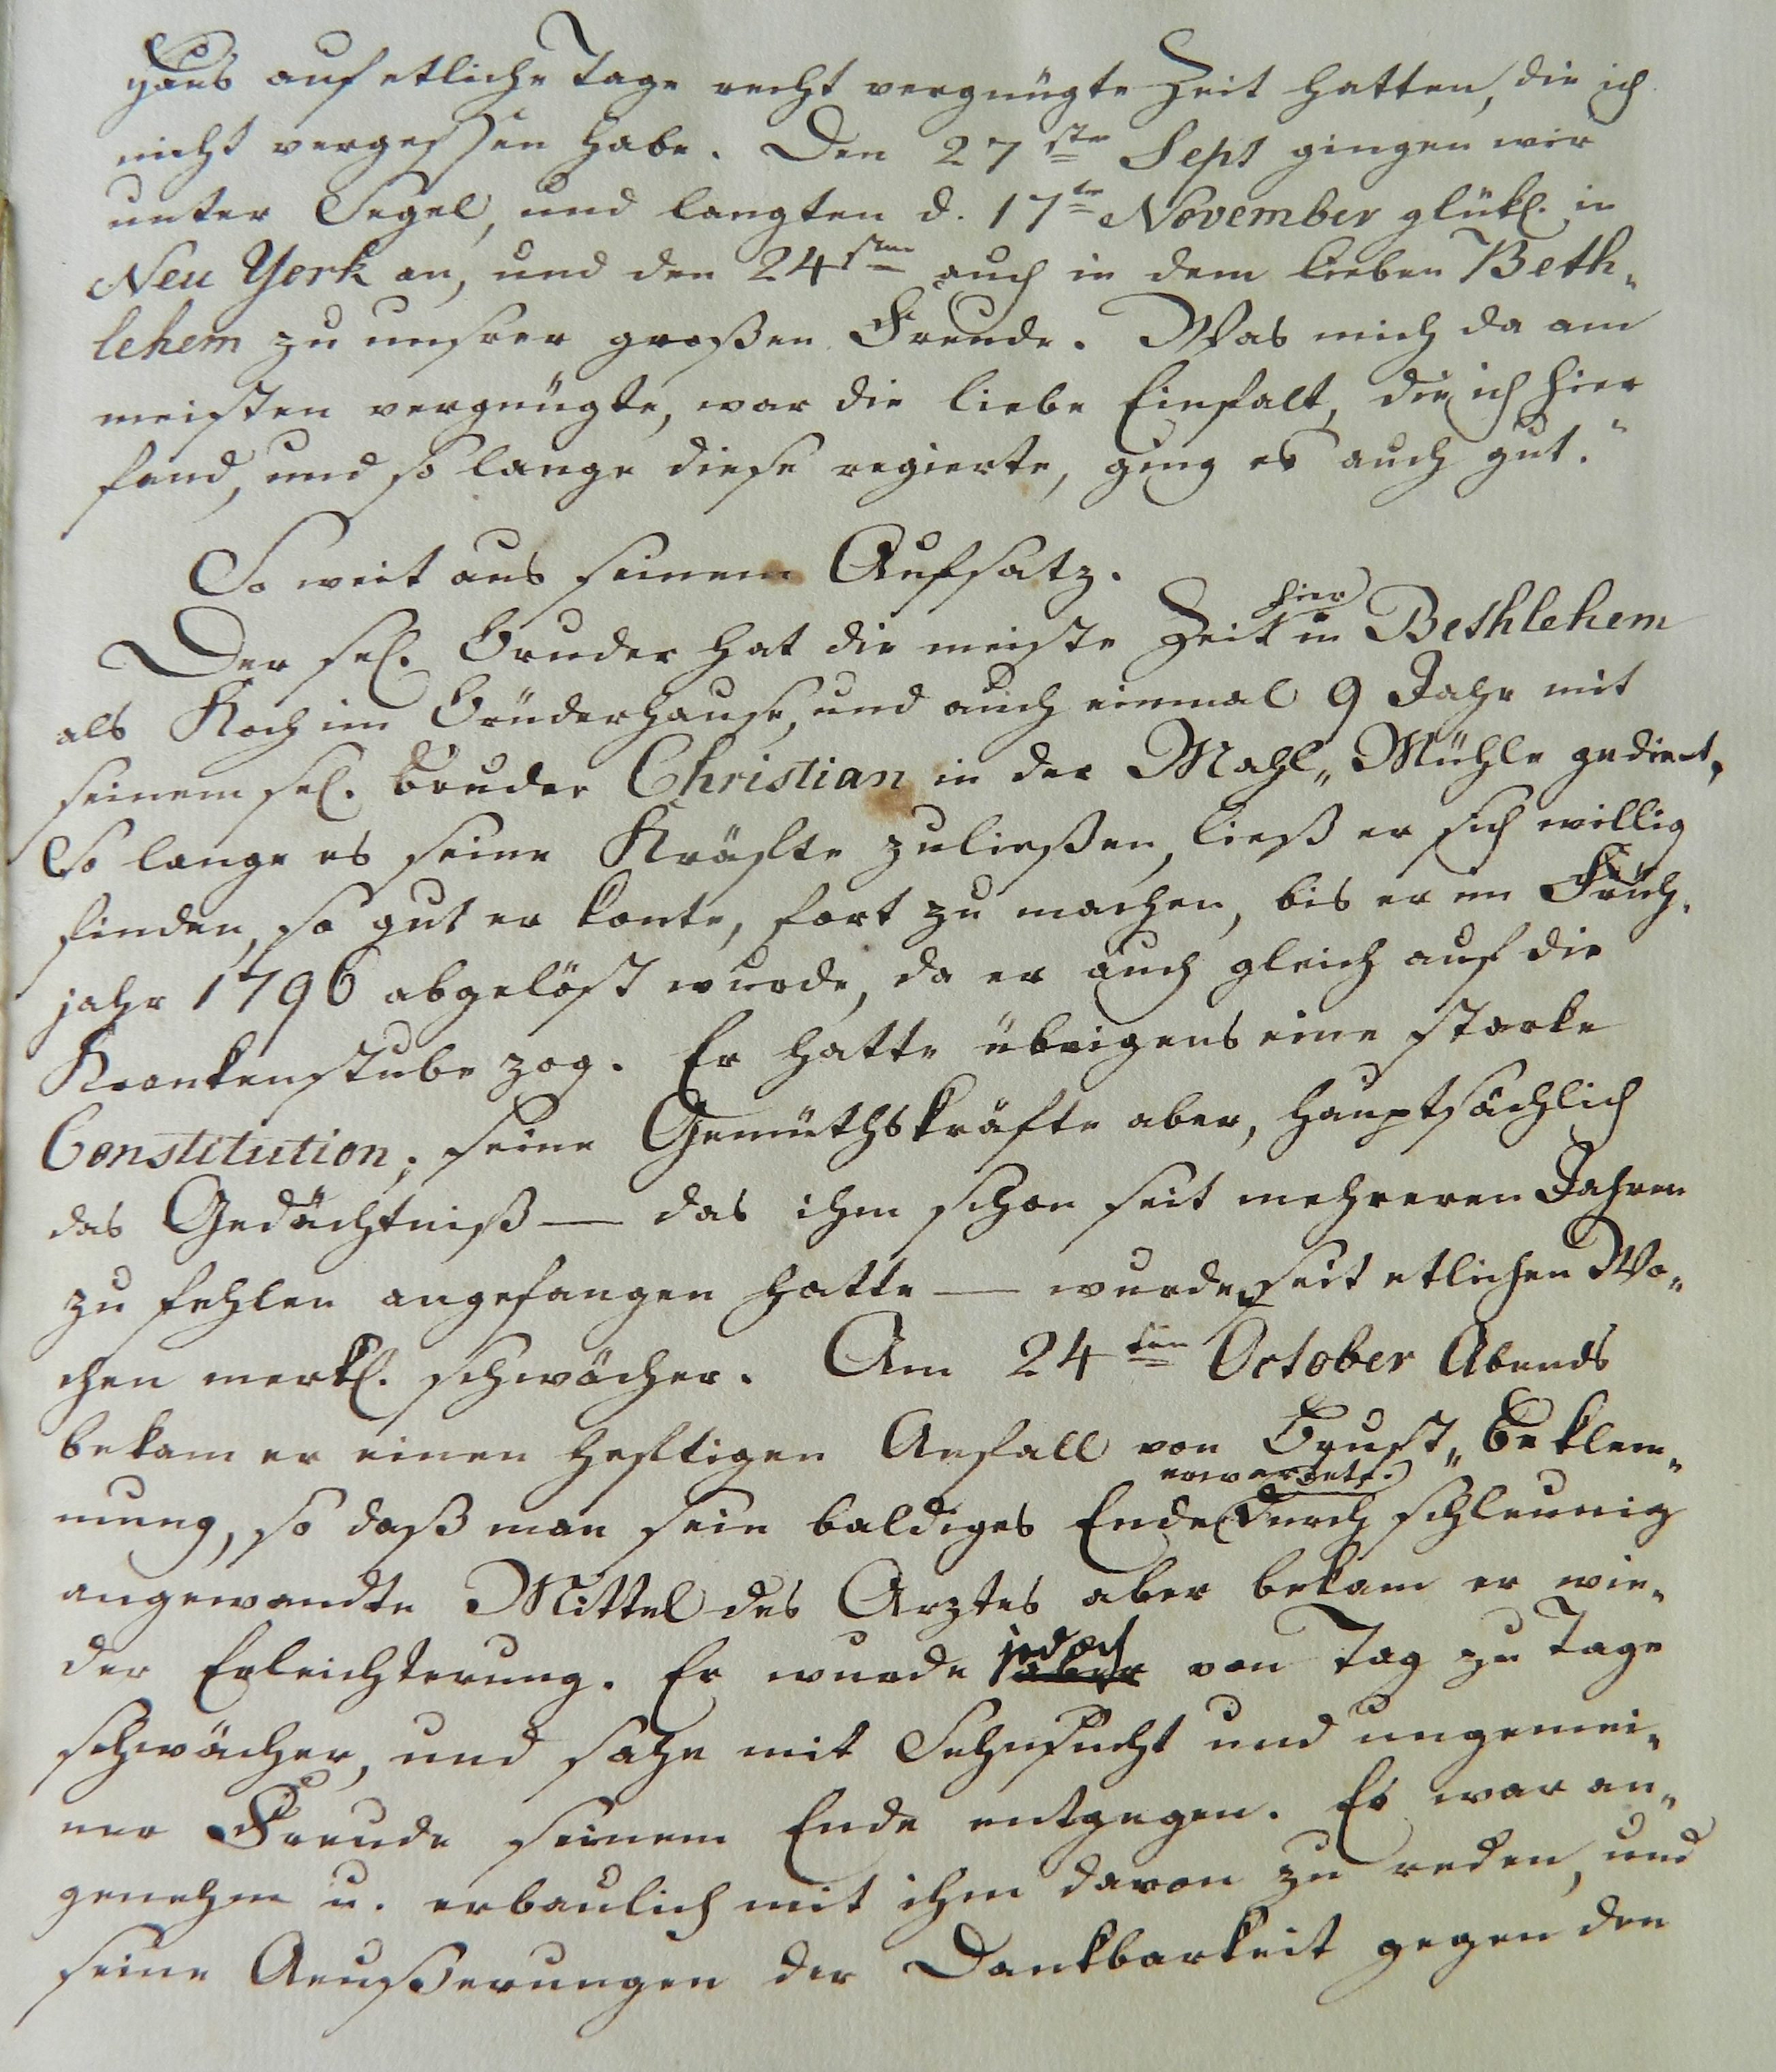 Haus auf etliche Tage recht vergnügte Zeit hatten, die ich
nicht vergessen habe. Den 27ste Sept gingen wir
unter Segel, und langten d. 17te November glükl. in
Neu York an, und den 24sten auch in dem lieben Beth„
lehem zu unsrer großen Freude. Was mich da am
meisten vergnügte, war die liebe Einfalt, die ich hier
fand, und so lange diese regierte, ging es auch gut."
So weit aus seinem Aufsatz.
Der sel. Bruder hat die meiste Zeit hier in Bethlehem
als Koch im Brüderhause, und auch einmal 9 Jahr mit
seinem sel. Bruder Christian in der Mahl„Mühle gedient,
So lange es seine Kräfte zuließen, ließ er sich willig
finden, so gut er konte, fort zu machen, bis er im Früh„
jahr 1796 abgelöst wurde, da er auch gleich auf die
Krankenstube zog. Er hatte übrigens eine starke
Constitution; seine Gemüthskräfte aber, hauptsächlich
das Gedächtniß — das ihm schon seit mehreren Jahren
zu fehlen angefangen hatte — wurden seit etlichen Wo„
chen merkl. schwächer. Am 24ten October Abends
bekam er einen heftigen Anfall von Brust„Beklem„
mung, so daß man sein baldiges Ende erwartete. Durch schleunig
angewandte Mittel des Arztes aber bekam er wie„
der Erleichterung. Er wurde jedoch aber von Tag zu Tage
schwächer, und sahe mit Sehnsucht und ungemei„
ner Freude seinem Ende entgegen. Es war an„
genehm u. erbaulich mit ihm davon zu reden, und
seine Aeußerungen der Dankbarkeit gegen den